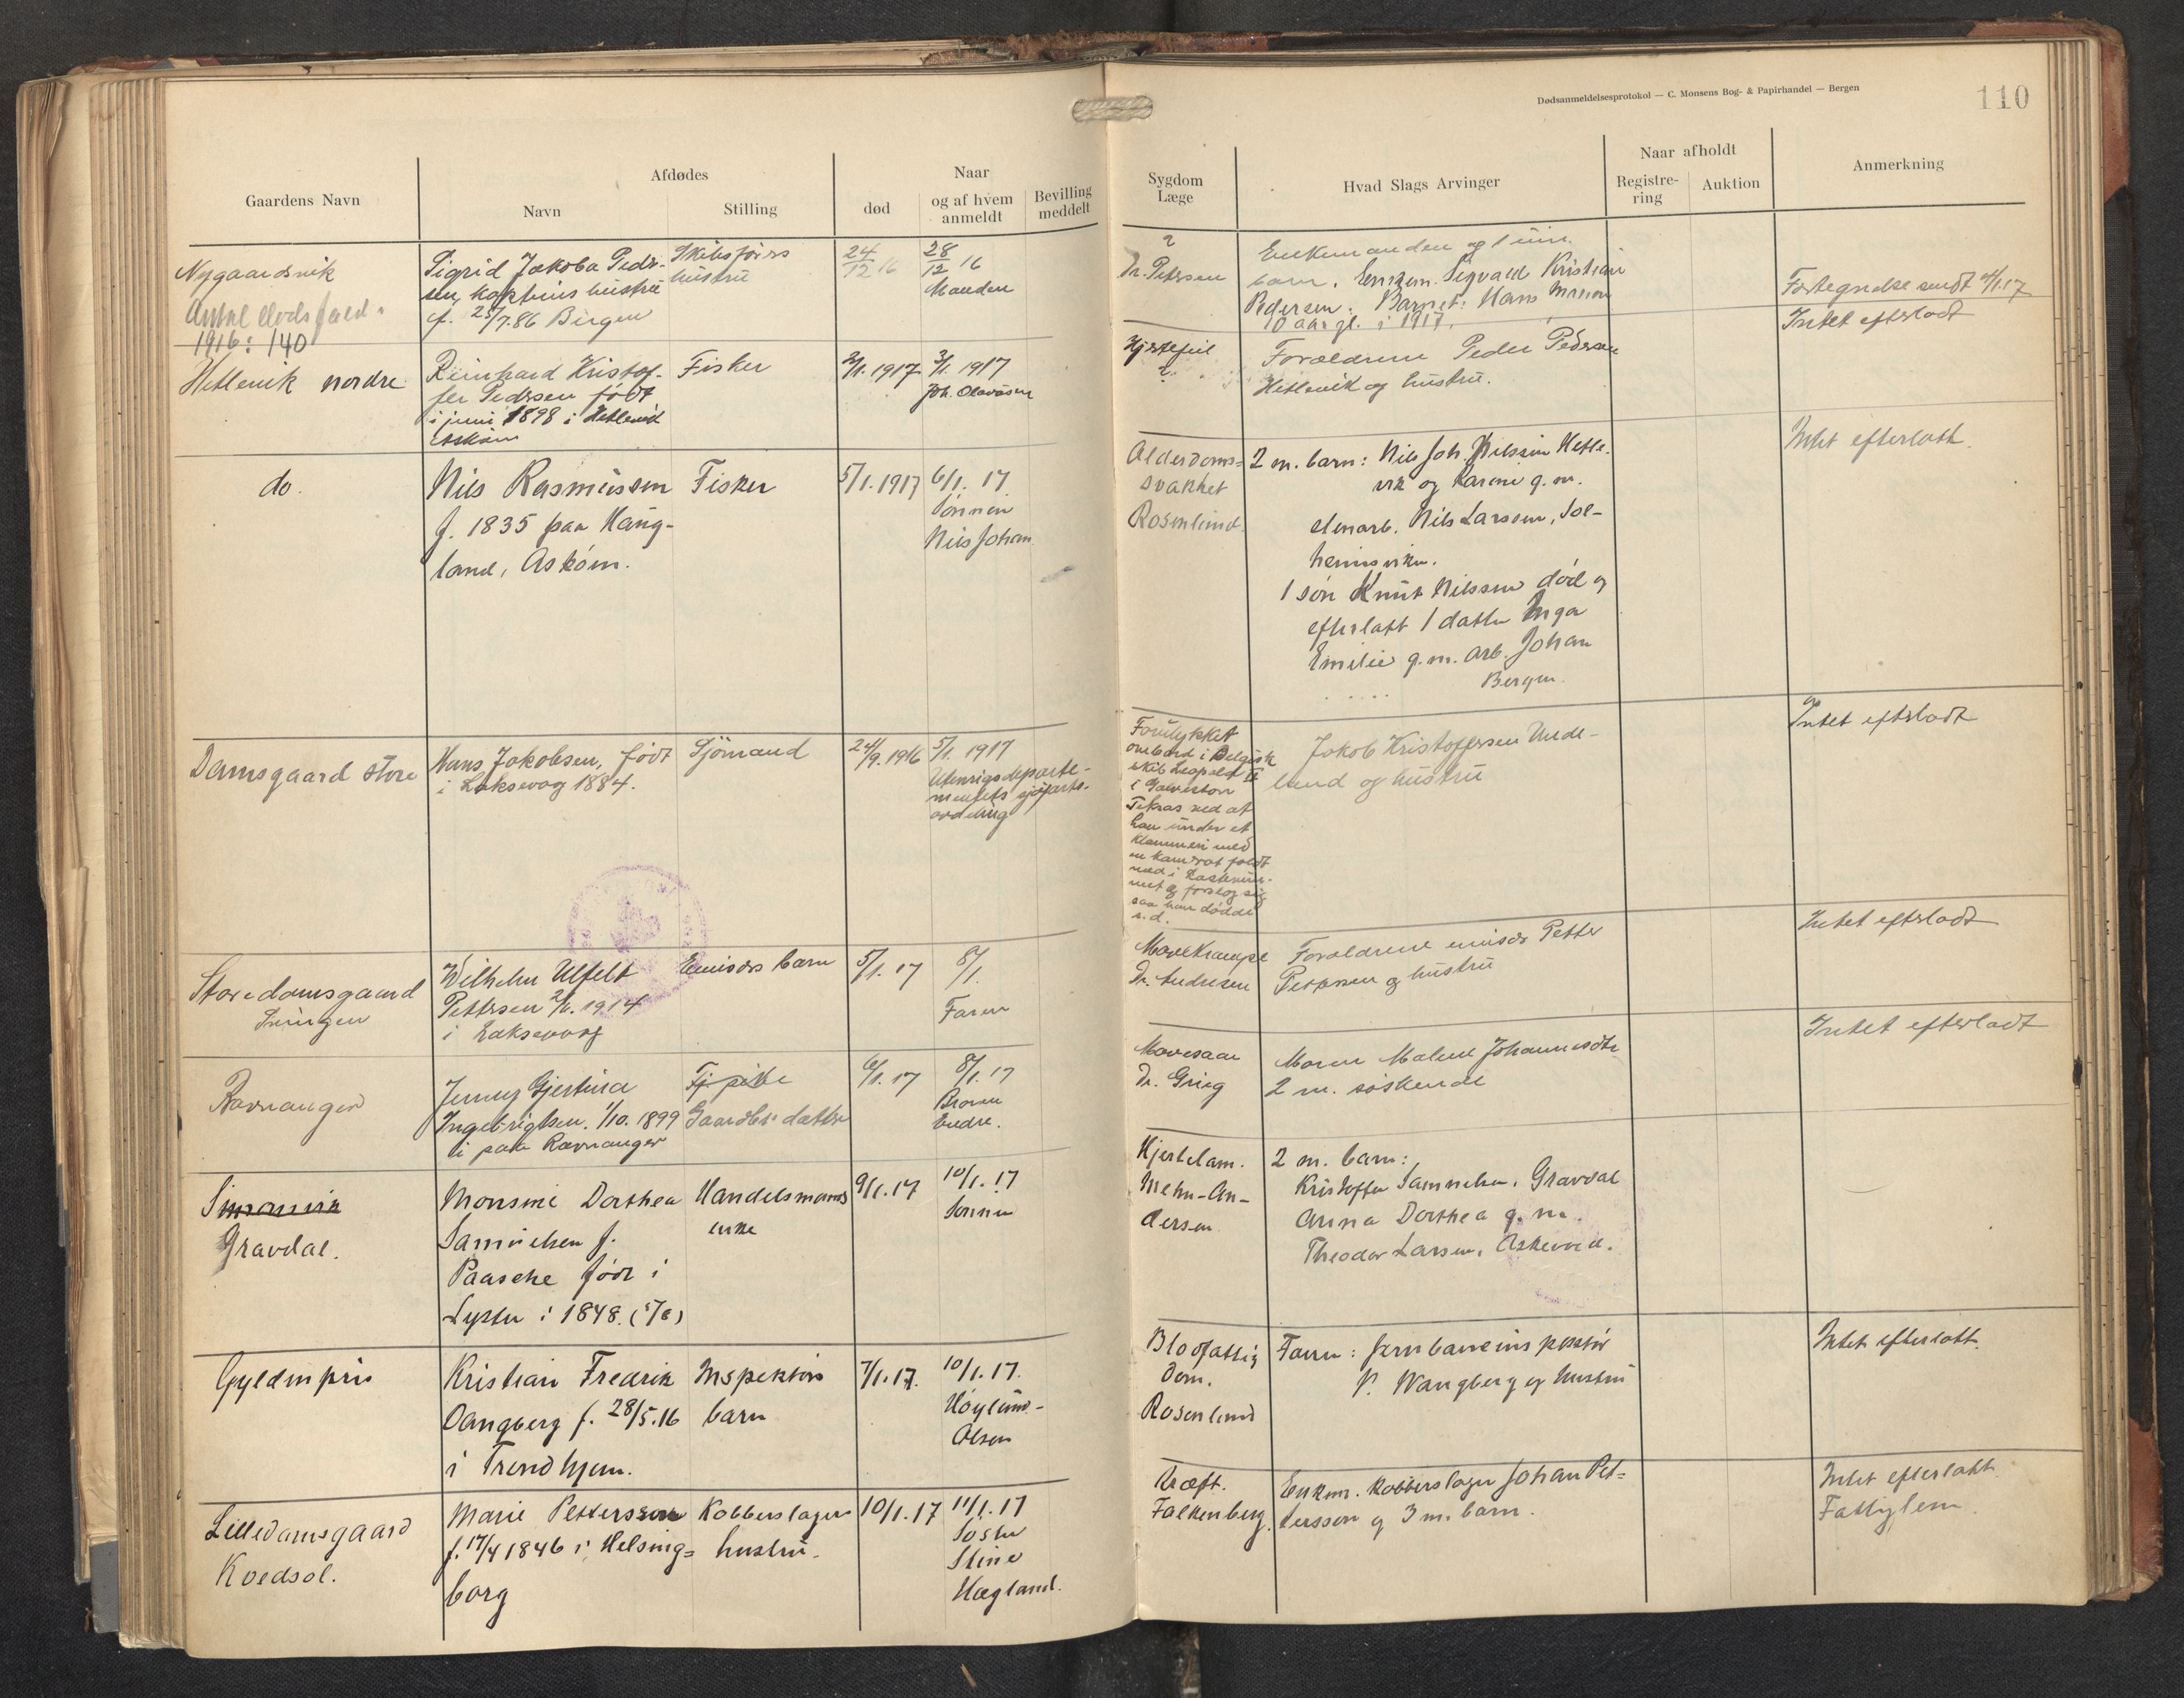 Dødsanmeldelsesprotokol — C. Monsens Bog- & Papirhandel — Bergen
110
Gaardens Navn
Afdødes
Navn
Stilling
Naar
død
og af hvem anmeldt
Bevilling meddelt
Sygdom
Læge
Hvad Slags Arvinger
Naar afholdt
Registre-
ring
Auktion
Anmerkning
Nygaardsvik
Antal dødsfald i
1916: 140
Sigrid Jakoba Peder-
sen, kapteins hustru
f. 25/7.86 Bergen
Skibsførers
hustru
24/12 16
28/12 16
Manden
?
Dr. Petersen
Enkemanden og 1 um.
barn. Enkem. Sigvald Kristian
Pedersen. Barnet: Hans
10 aar gl. i 1917.
Fortegnelse sendt 4/1.17
Hetlevik nordre
Reinhard Kristof-
fer Pedersen født
i juni 1898 i Hetlevik
Askøen
Fisker
2/1.1917
3/1. 1917
Joh. Olavesen
Hjertefeil
?
Forældrene Peder Pedersen
Hetlevik og hustru.
Intet efterladt
do.
Nils Rasmussen
f. 1835 paa Haug-
land, Askøen.
Fisker
5/1.1917
6/1. 17
Sønnen
Nils Johan
Alderdoms=
svakhet
Rosenlund.
2 m. barn: Nils Joh. Nilssen Hetle-
vik og Karine g.m.
stenarb. Nils Larssen, Sol-
heimsviken.
1 søn Knut Nilssen død og
efterlatt 1 datter Inga
Emilie g.m. arb. Johan
Bergen.
Intet efterlatt.
Damsgaard store
Hans Jakobsen, født
i Laksevog 1884.
Sjömand
24/9.1916
5/1. 1917
Utenrigsdeparte-
mentets sjøfarts-
avdeling
Forulykket
ombord i Belgisk
skib Leopold II
i Galveston
Teksas ved at
han under et
klammeri med
en kamerat faldt
ned i lasterum-
met og forslog sig
saa han døde
s.d.
Jakob Kristoffersen Unde-
lund og hustru
Intet efterladt
Storedamsgaard
Wilhelm Ulfelt
Pettersen 2/6.1914
i Laksevog
Emisærs barn
5/1.17
8/1.
Faren
Mavekrampe
Dr. Andresen
Forældrene emisær Petter
Petersen og hustru
Intet efterladt
Ravnanger
Jenny Gjertine
Ingebrigtsen. 1/10.1899
i paa Ravnanger
Tj. pike
Gaardbr. datter
6/1.17
8/1.17
Broren
Endre.
Mavesaar
Dr. Grieg
Moren Malene Johannesdtr
2 m. söskende
Intet efterladt
Simonsvik
Gravdal.
Monsine Dorthea
Samuelsen f.
Paasche født i
Lyster i 1848. (5/6)
Handelsmands
enke
9/1.17
10/1.17
Sønnen
Hjertelam.
Mehn-An-
dersen
2 m. barn:
Kristoffer Samuelsen, Gravdal
Anna Dorthea g.m.
Theodor Larsen, Askevold.
Gyldenpris
Kristian Fredrik
Vangberg f. 28/5.16
i Trondhjem.
Inspektørs
barn
7/1.17.
10/1.17.
Høylund-
Olsen
Blodfattig
dom.
Rosenlund
Faren: Jernbaneinspektør
P. Wangberg og hustru
Intet efterlatt.
Lilledamsgaard
Kvedsol.
Marie Pettersson
f. 17/4 1846 i Helsing=
borg
Kobberslager
hustru.
10/1.17
11/1.17
Søster
Stine
Hægland.
Kræft.
Falkenberg.
Enkem. Kobberslager Johan Pet=
tersson og 3 m. barn.
Intet efterlatt
Fattiglem